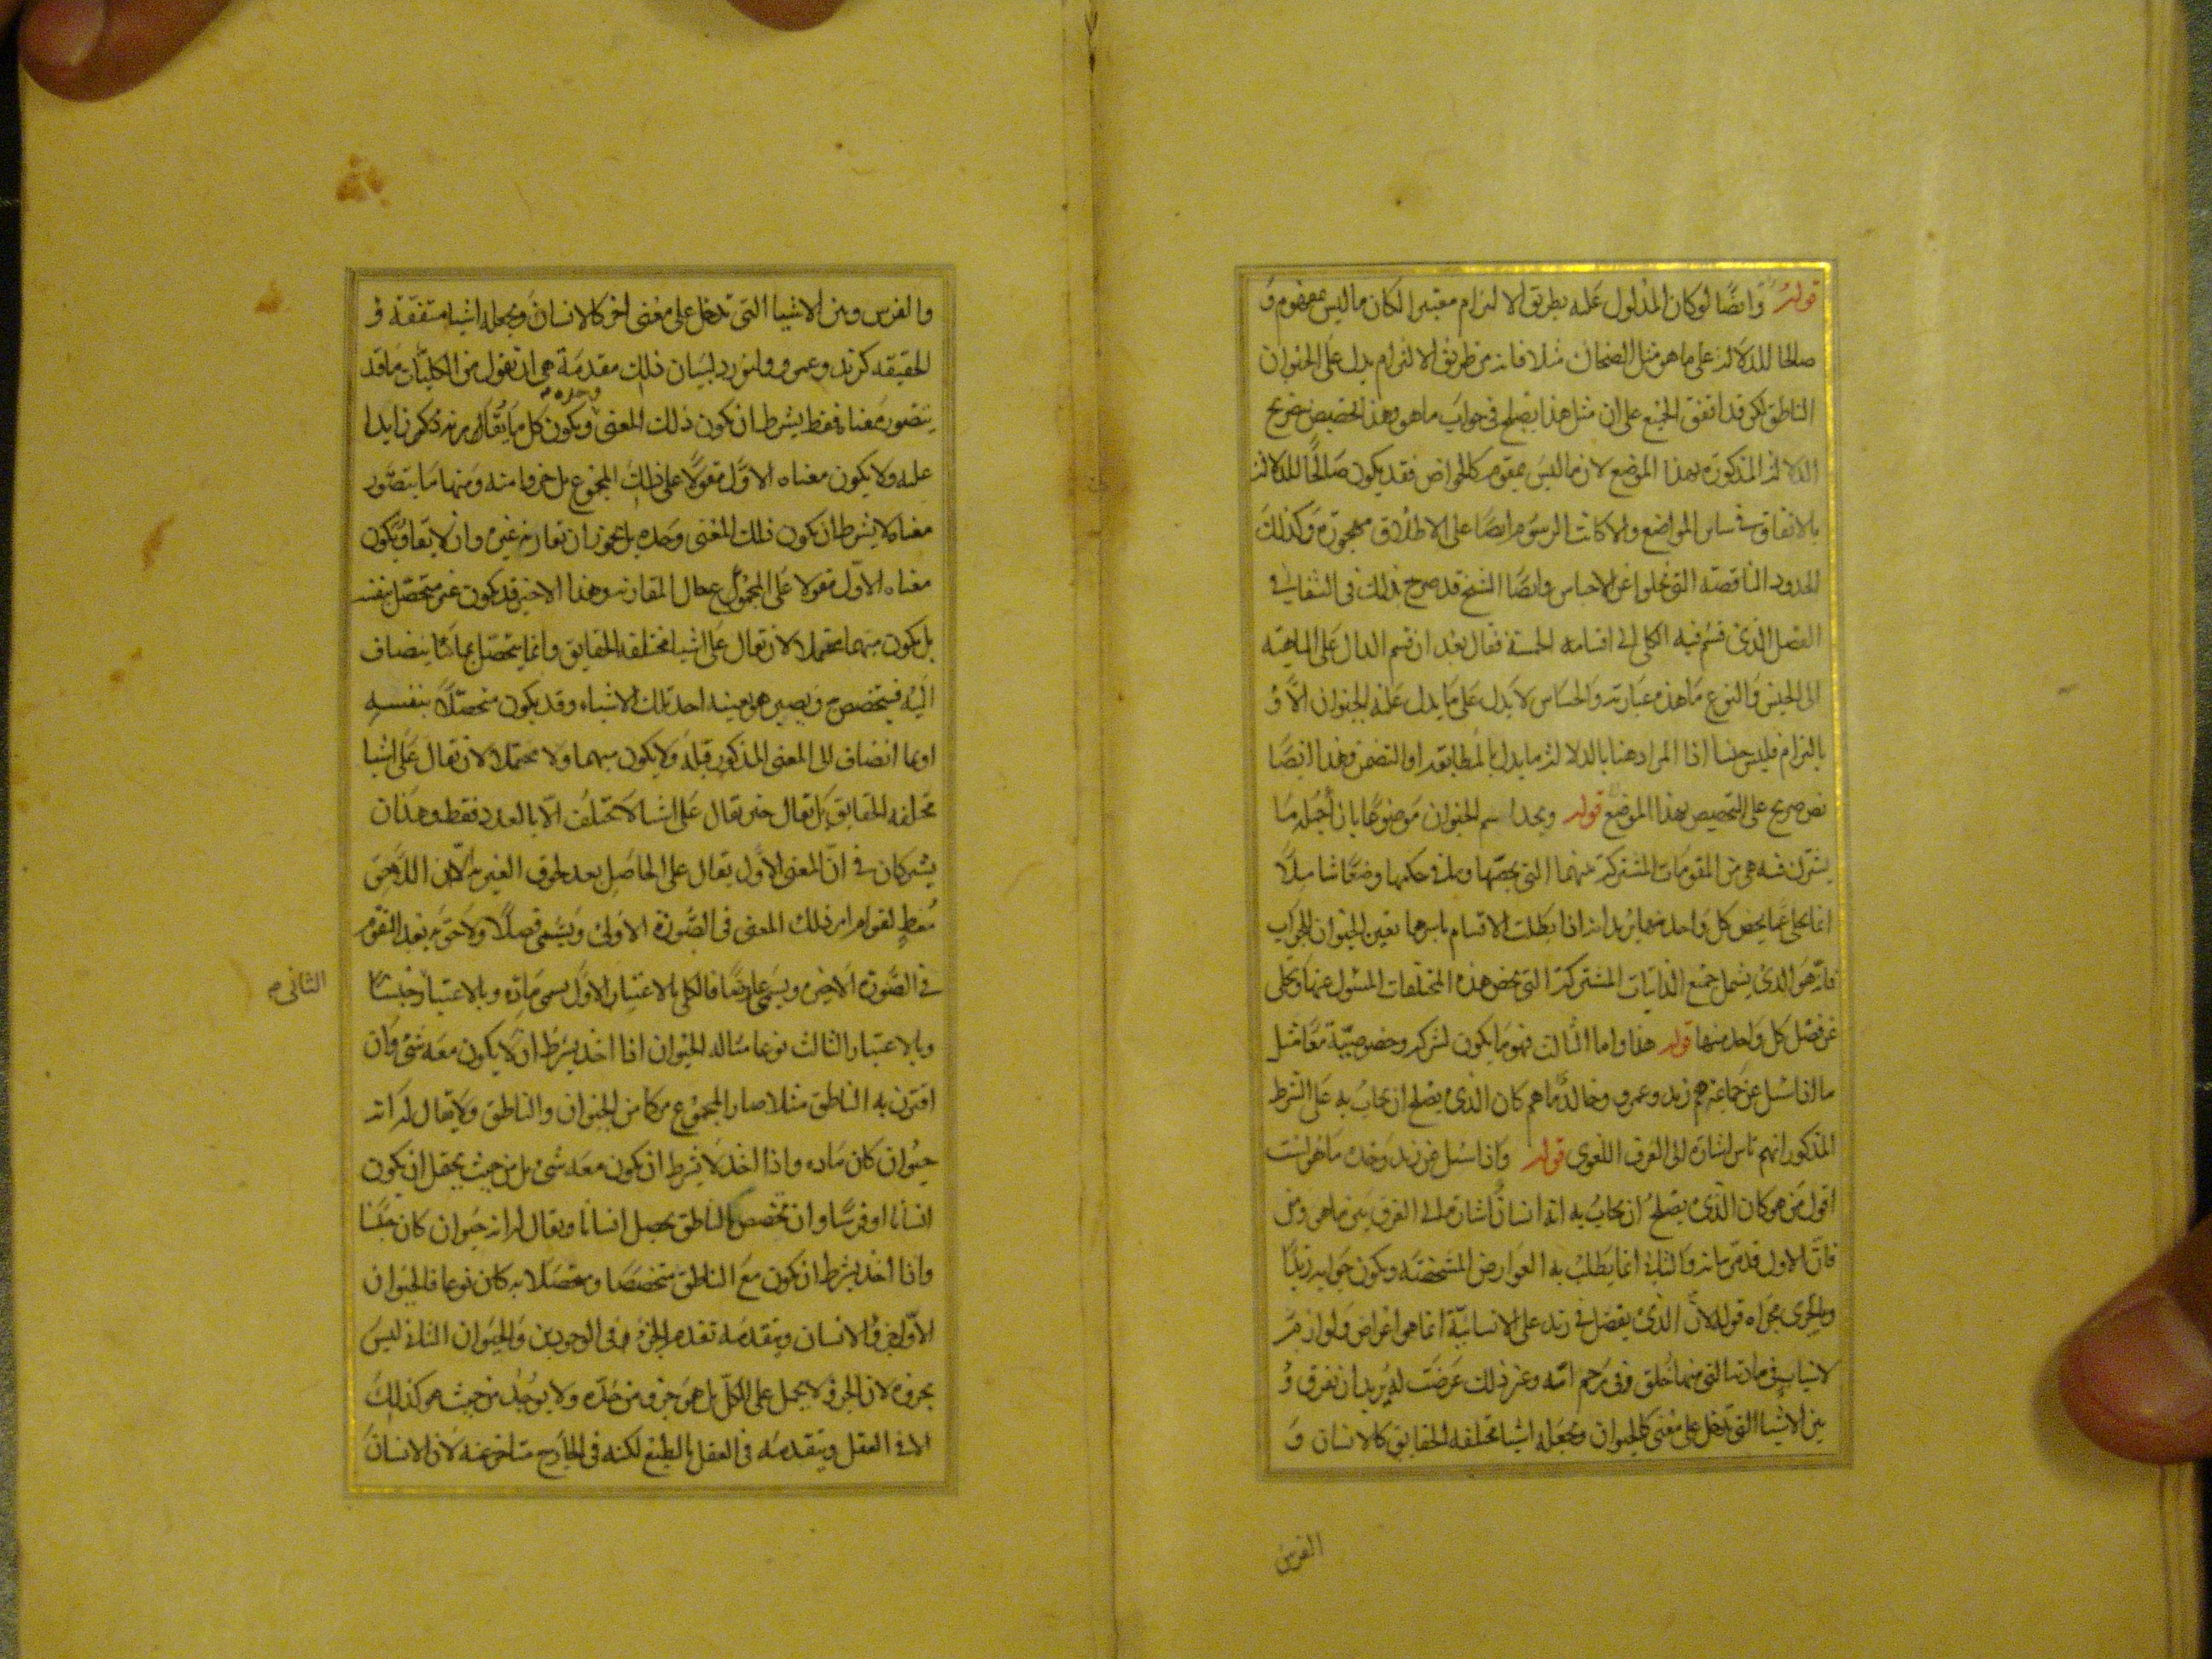 قوله وايضًا لو كان المدلول عليه بطريق الالتزام معتبرا لكان ما ليس بمقوم و
صالحا للدلالة على ما هو مثل الضحاك مثلا فانه من طريق الالتزام يدل على الحيوان
الناطق لكن قد اتفق الجميع على ان مثل هذا يصلح في جواب ما هو وهذا تخصيص صريح
الدلالة المذكورة بهذا الموضع لان ما ليس بمقوم كالخواص فقد يكون صالحًا للدلالة
بالاتفاق في سائر المواضع والا كانت الرسوم ايضًا على الاطلاق مهجورة وكذلك
الحدود الناقصة التي تخلوا عن الاجناس وايضًا الشيخ قد صرح بذلك في الشفا في
الفصل الذي قسم فيه الكلي الى اقسامه الخمسة فقال بعد ان قسم الدال على الماهية
الى الجنس والنوع ما هذه عبارته والحساس لا يدل على ما يدل عليه الحيوان الا و
بالتزام فليس جنسا اذا المراد هنا بالدلالة ما يدل بالمطابقة او التضمن وهذا ايضًا
نص صريح على التخصيص بهذا الموضع قوله ويحدا اسم الحيوان موضوعًا بازا جملة ما
يشترك فيه هي من المقومات المشتركة بينهما التي تخصها وما في حكمها وضعًا شاملًا
انما يخلي عما يخص كل واحد منها يريد انه اذا بطلت الاقسام باسرها تعين الحيوان للجواب
فانه هو الذي يشمل جميع الذاتيات المشتركة التي تخص هذه المختلفات المسئول عنها ويخلي
عن فصل كل واحد منها قوله هذا واما الثالث فهو ما يكون لشركة وخصوصية معًا مثل
ما اذا سئل عن جماعة هم زيد وعمرو وخالد ما هم كان الذي يصلح ان يجاب به على الشرط
المذكور انهم ناس اشارة الى العرف اللغوي قوله واذا سئل عن زيد وحده ما هو لست
اقول من هو كان الذي يصلح ان يجاب به انه انسان اشارة الى الفرق بين ما هو ومن
فان الاول قد مر بيانه والثاني انما يطلب به العوارض المشخصة ويكون جوابه زيدًا
وما جرى مجراه قوله لان الذي يفضل في زيد على الانسانية انما هي اعراض ولوازم
لاسباب في مادته التي منها خلق وفي رحم امه وغير ذلك عرضت له يريد ان نفرق و
بين الاشيا التي تدخل على معنى كالحيوان وتجعله اشيا مختلفة الحقايق كالانسان و
الفرس
والفرس وبين الاشيا التي تدخل على معنى اخر كالانسان وتجعله اشيا متفقة و
الحقيقه كزيد وعمرو ولنورد لبيان ذلك مقدمة هي ان نقول من الكليات ما قد
وحده
يتصور معناه فقط بشرط ان يكون ذلك المعنى ويكون كل ما يقارنه زائدا
عليه ولا يكون معناه الاول مقولا على ذلك المجموع بل جزوا منه ومنها ما يتصور
معناه لا بشرط ان يكون ذلك المعنى وحده بل تجوز ان يقارنه غيره وان لا يقارنه ويكون
معناه الاول مقولا على المجموع حال المقارنه وهذا الاخير قد يكون غير متحصل بنفسه
بل يكون مبهما محتملا لان يقال على اشيا مختلفة الحقايق وانما يتحصل بما ينضاف
اليه فيتخصص به ويصير هو بعينه احد تلك الاشياء وقد يكون متحصلًا بنفسه
او بما انضاف الى المعنى المذكور قبله ولا يكون مبهما ولا محتملا لان يقال على اشيا
مختلفه الحقايق بل يقال حين يقال على اشيا لا تختلف الا بالعدد فقط وهذان
يشتركان في ان المعنى الاول يقال على الحاصل بعد لحوق الغير به الا ان اللاحق
معطٍ لقوام ذلك المعنى في الصورة الاولى ويسمى فصلًا ولاحق به بعد التقوم
في الصورة الاخيره ويسمى عارضًا فالكلي بالاعتبار الاول يسمى مادة وبالاعتبار جنسًا
الثاني
وبالاعتبار الثالث نوعا مثاله الحيوان اذا اخذ بشرط ان لا يكون معه شئ وان
اقترن به الناطق مثلا صار المجموع مركبا من الحيوان والناطق ولا يقال له انه
حيوان كان ماده واذا اخذ لا بشرط ان يكون معه شئ بل من حيث يحتمل ان يكون
انسانا او فرسًا وان تخصص بالناطق يحصل انسانا ويقال له انه حيوان كان جنسا
واذا اخذ بشرط ان يكون مع الناطق متخصصا ومتحصلا به كان نوعا فالحيوان
الاول جزو الانسان ويتقدمه تقدم الجزء في الوجودين والحيوان الثاني ليس
بجزوه لان الجزو لا يحمل على الكل بل هو جزو من حده ولا يوجد من حيث هو كذلك
الا في العقل ويتقدمه في العقل بالطبع لكنه في الخارج متاخر عنه لان الانسان